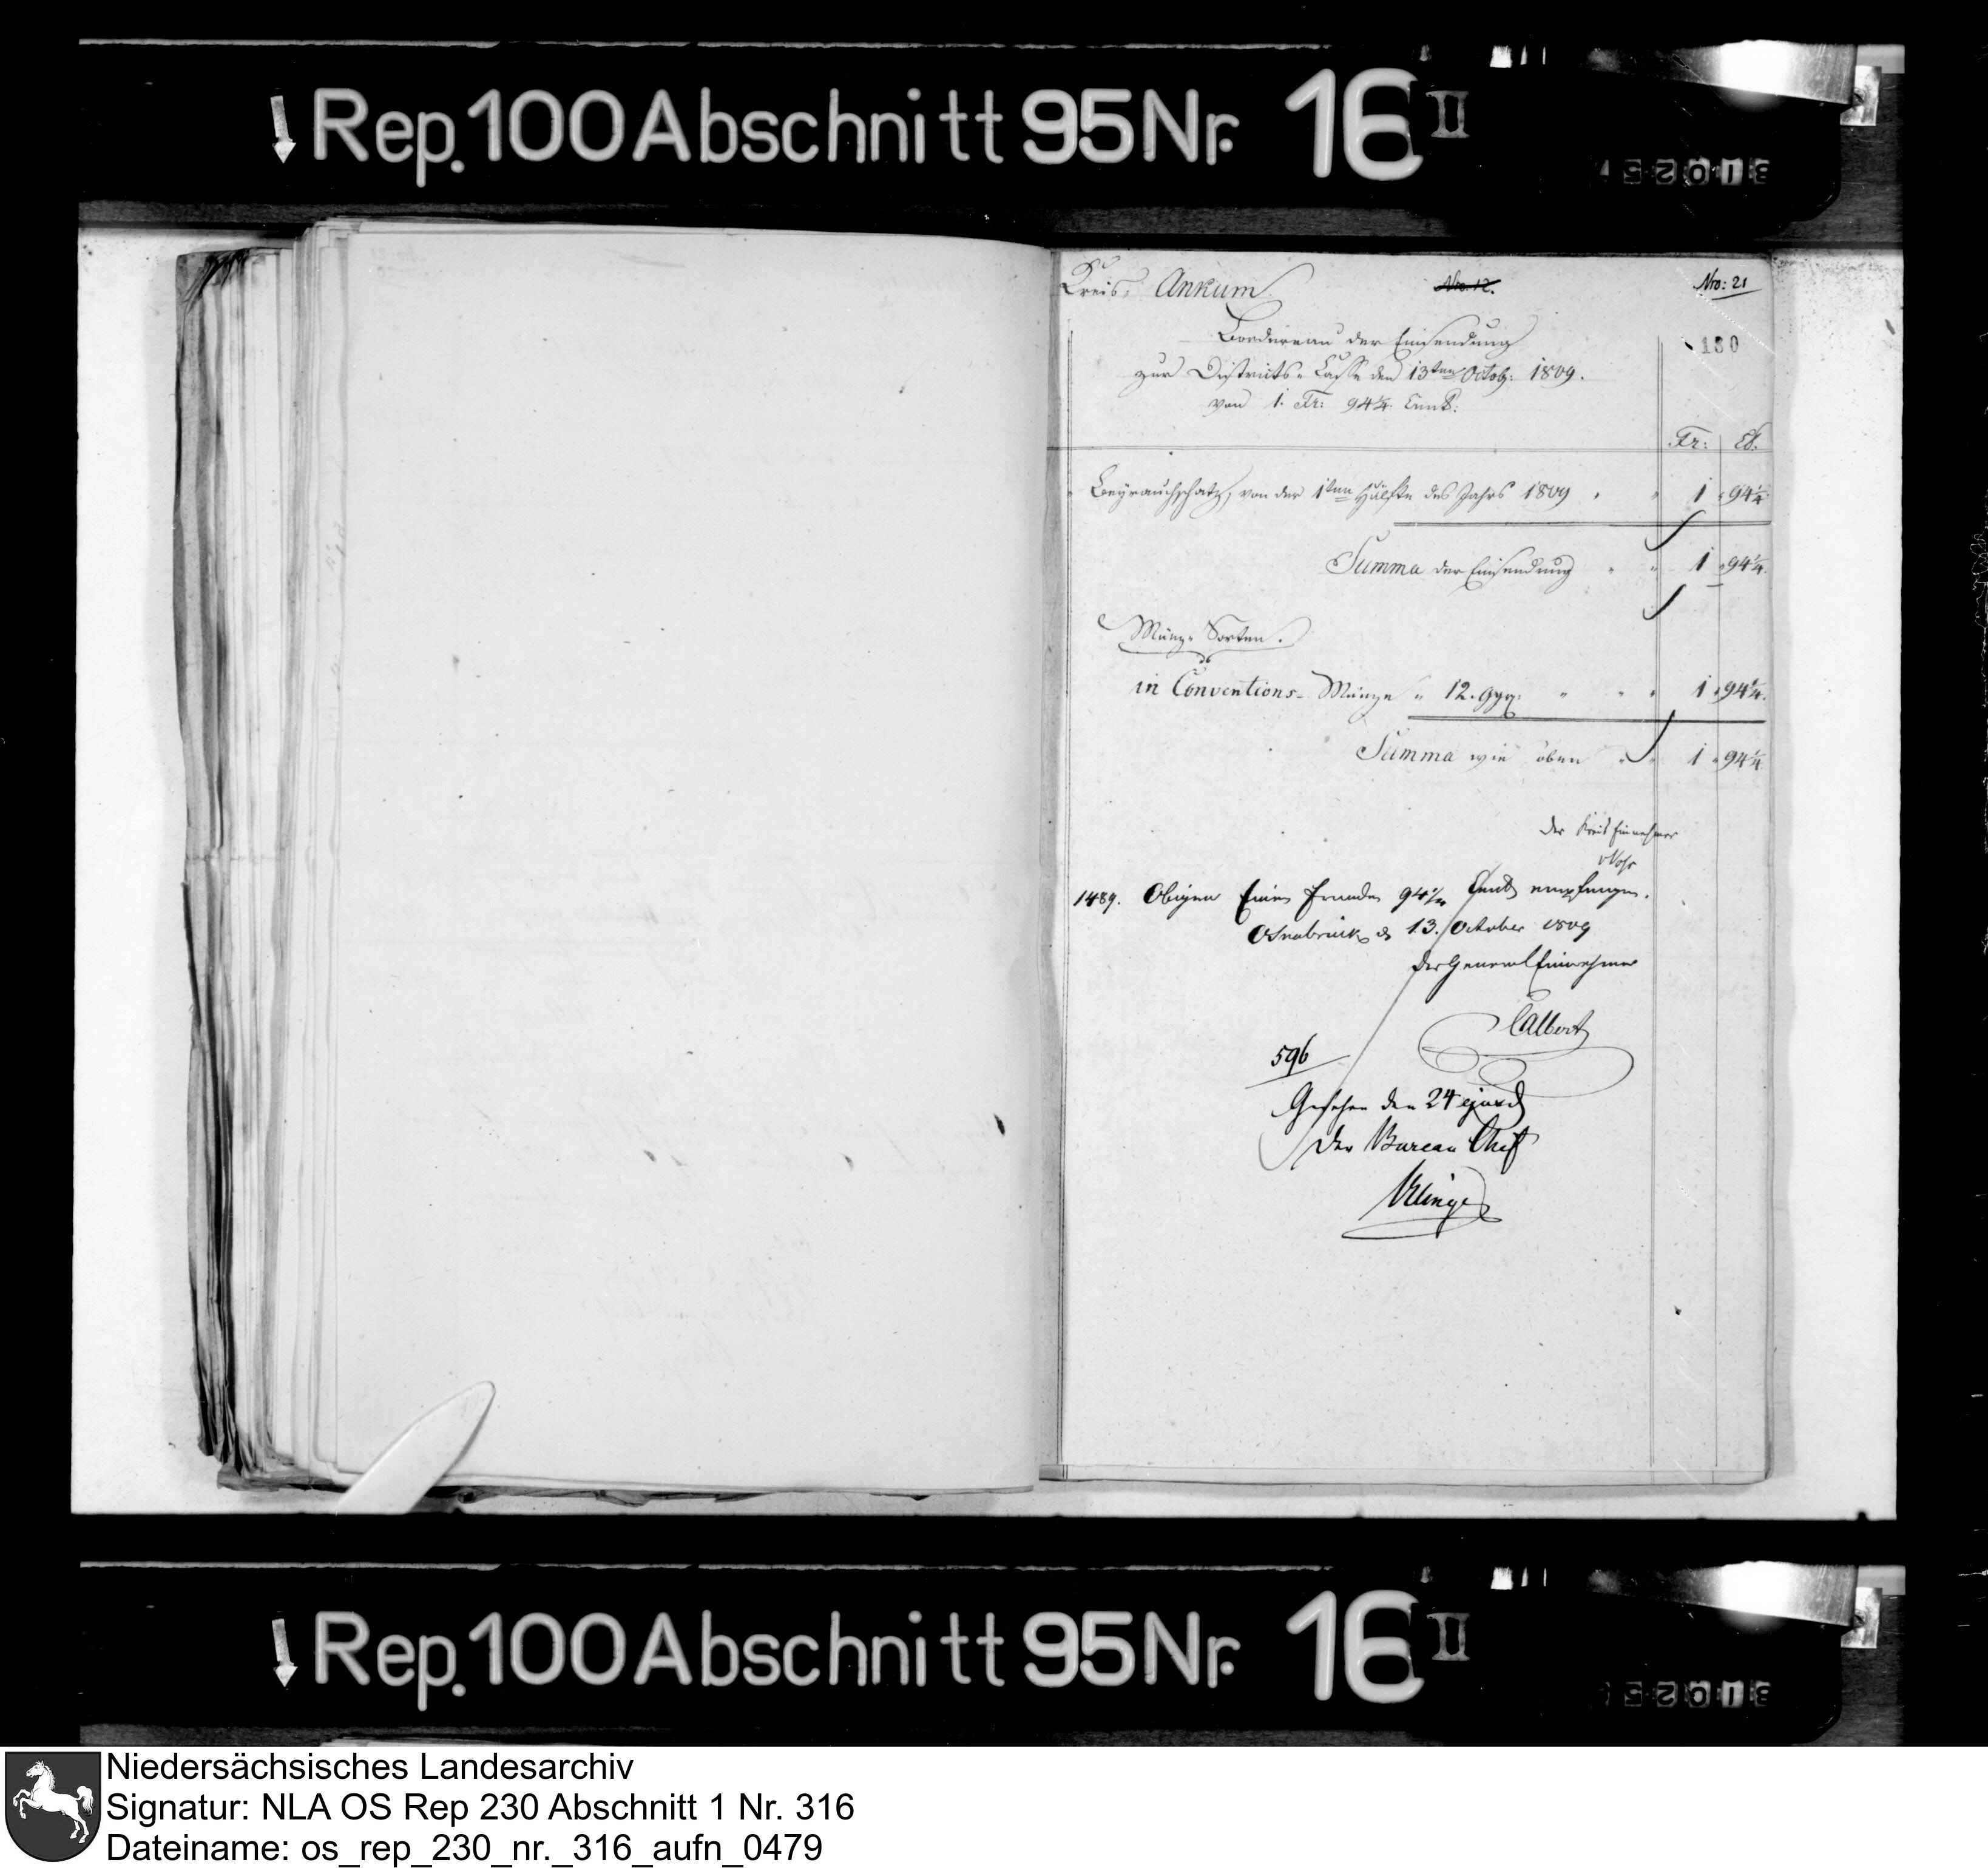 Rep. 100 Abschnitt 95 Nr. 16 II
310257
Kreis: Ankum.
Nro. 12.
Nro: 21
130
Bordereau der Einsendung
zur Districts-Casse den 13ten Octob: 1809.
von 1. Fr: 94¼ Cent:
Fr: Ct.
von der 1sten Hälfte des Jahrs 1809 " " 1 " 94¼
Summa der Einsendung " " 1 " 94¼.
Münz-Sorten.
in Conventions-Münze " 12. ggr: " " " 1 " 94¼.
Summa wie oben " " 1 " 94¼
Der Kreis Einnehmer
1489. Obigen Einen Franken 94¼ Cent empfangen.
Osnabrück d 13. October 1809
Der General Einnehmer
Calbert
596
Gesehen den 24 ejusd
Der Bureau Chef
Klinge
Rep. 100 Abschnitt 95 Nr. 16 II
310257
Niedersächsisches Landesarchiv
Signatur: NLA OS Rep 230 Abschnitt 1 Nr. 316
Dateiname: os_rep_230_nr._316_aufn_0479